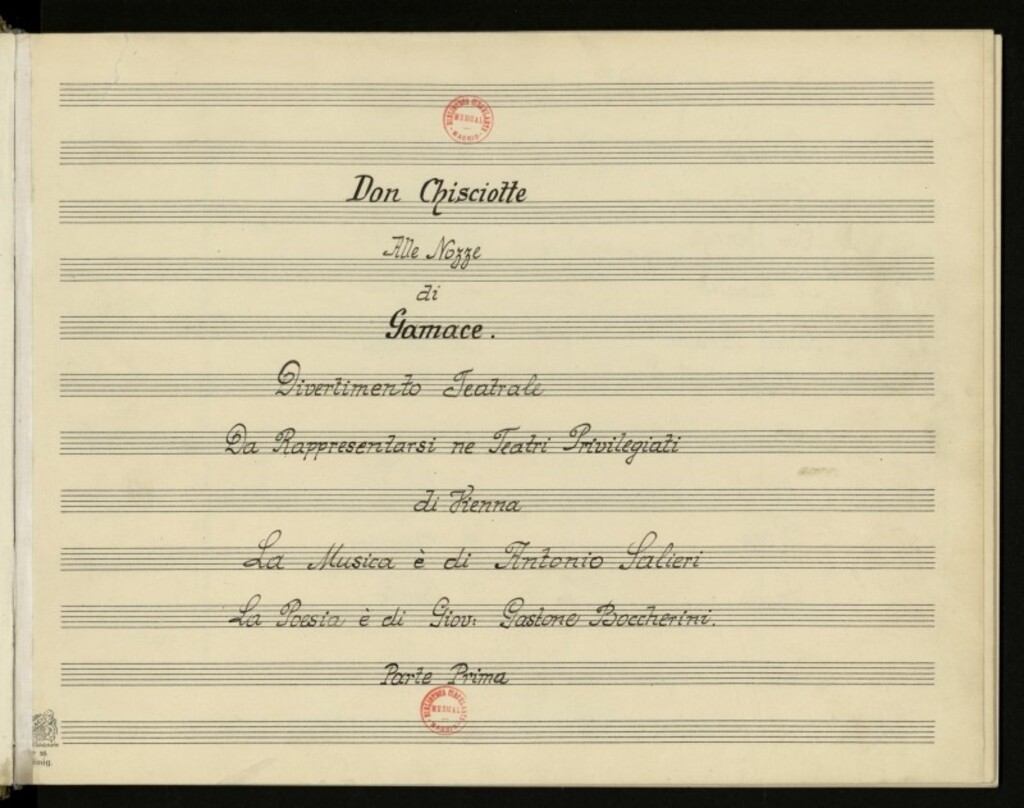 BIBLIOTECA CIRCULANTE
MUSICAL
MADRID
Don Chisciotte
Alle Nozze
di
Gamace.
Divertimento Teatrale
Da Rappresentarsi ne Teatri Privilegiati
di Vienna
La Musica è di Antonio Salieri
La Poesia è di Giov: Gastone Boccherini.
Parte Prima
BIBLIOTECA CIRCULANTE
MUSICAL
MADRID